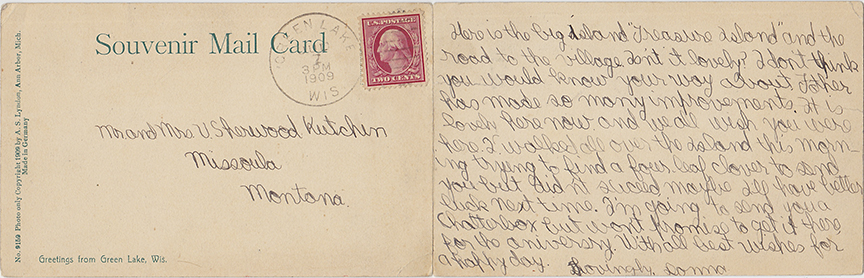 Souvenir Mail Card
GREEN LAKE
7
3 PM
1909
WIS
U.S. POSTAGE
TWO CENTS
Mr and Mrs V Sherwood Kutchin
Missoula
Montana.
No. 9159 Photo only Copyright 1909 by A. S. Lyndon, Ann Arbor, Mich.
Made in Germany
Greetings from Green Lake, Wis.
Here is the big island "Treasure Island" and the
road to the village Isnt it lovely? I dont think
you would know your way about Father
has made so many improvements. It is
lovely here now and we all wish you were
here I walked all over the island this morn
ing trying to find a four leaf clover to send
you but didn't suceed maybe Ill have better
luck next time. I'm going to send you a
Chatterbox but wont promise to get it here
for the aniversry With all best wishes for
a happy day. Lovingly